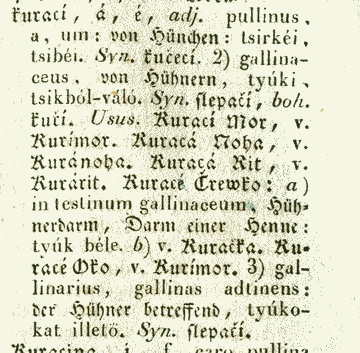 kurací, á, é, adj. pullinus,
a, um: von Hünchen: tsirkéi,
tsibéi. Syn. kučecí. 2) gallina-
ceus, von Hühnern, tyúki,
tsikból-való. Syn. slepačí, boh.
kuří. Usus. Kurací Mor, v.
Kurímor. Kuracá Noha, v.
Kuránoha. Kuracá Rit, v.
Kurárit. Kuracé Črewko: a)
intestinum gallinaceum, Hüh-
nerdarm, Darm einer Henne:
tyúk béle. b) v. Kuračka. Ku-
racé Oko, v. Kurímor. 3) gal-
linarius, gallinas adtinens:
der Hühner betreffend, tyúko-
kat illető. Syn. slepačí.